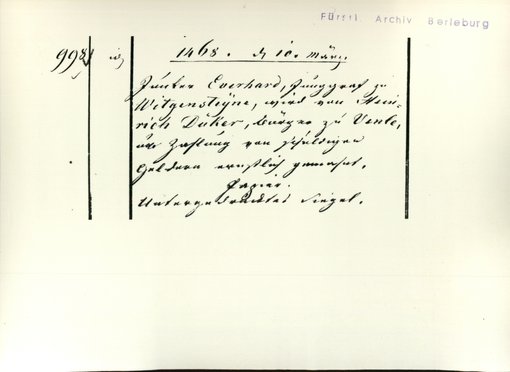 Fürstl. Archiv Berleburg
998
1468. d 10. März.
Junker Everhard, Junggraf zu
Witgensteyne, wird von Hein-
rich Duker, Bürger zu
um Zahlung von schuldigen
Geldern ernstlich gemahnt.
Papier.
Untergedrucktes Siegel.